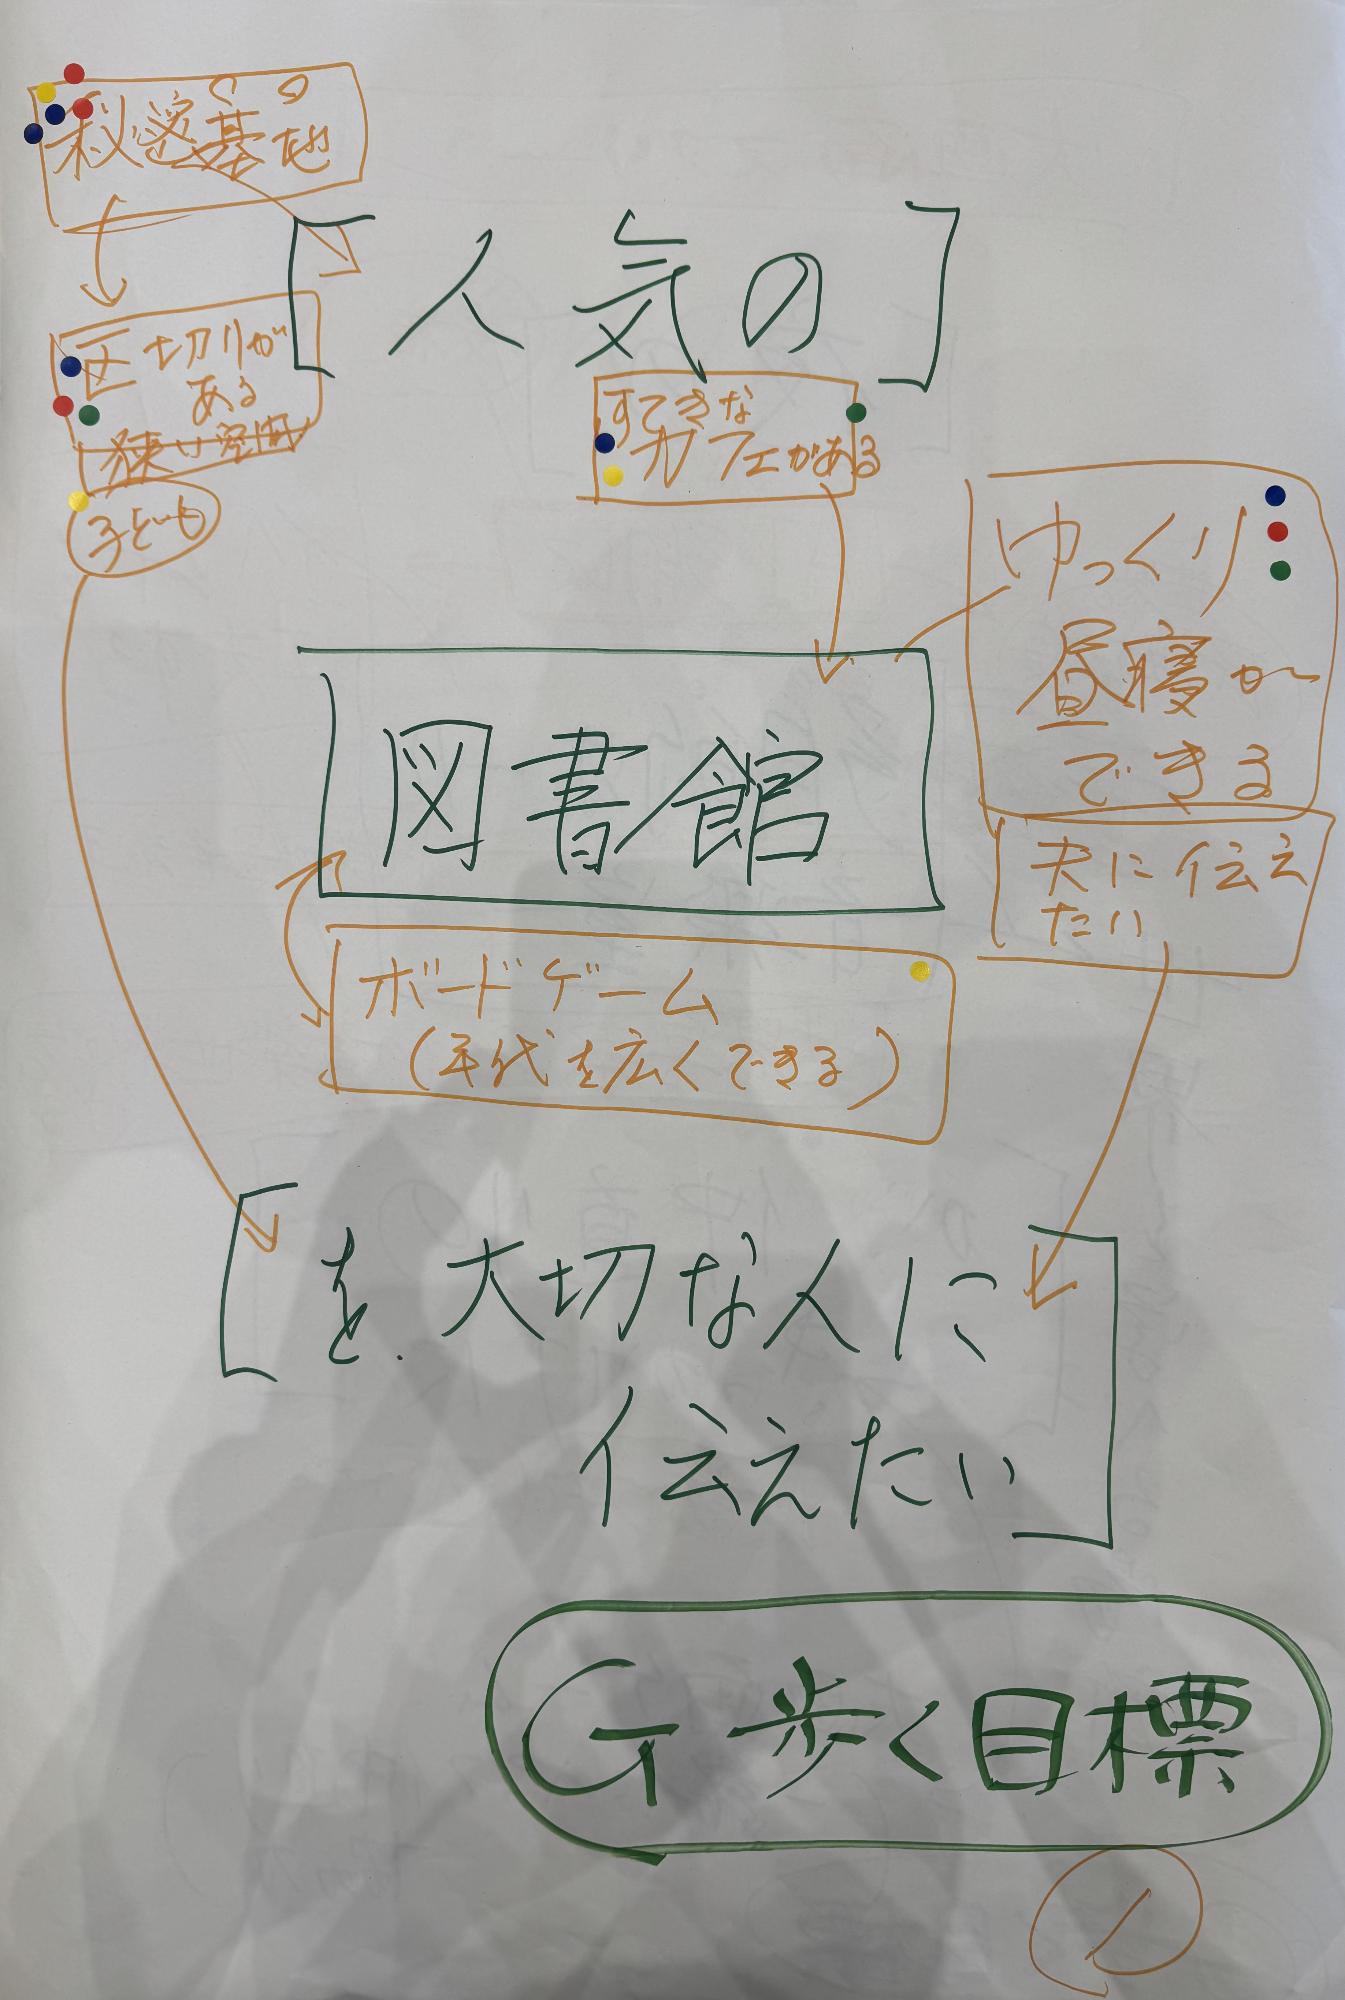 秘密基地
「人気の」
区切りが
ある
狭い空間
すてきな
カフェがある
子ども
ゆっくり
昼寝が
できる
図書館
夫に伝え
たい
ボードゲーム
(年代を広くできる)
「を大切な人に
伝えたい」
G 歩く目標
1